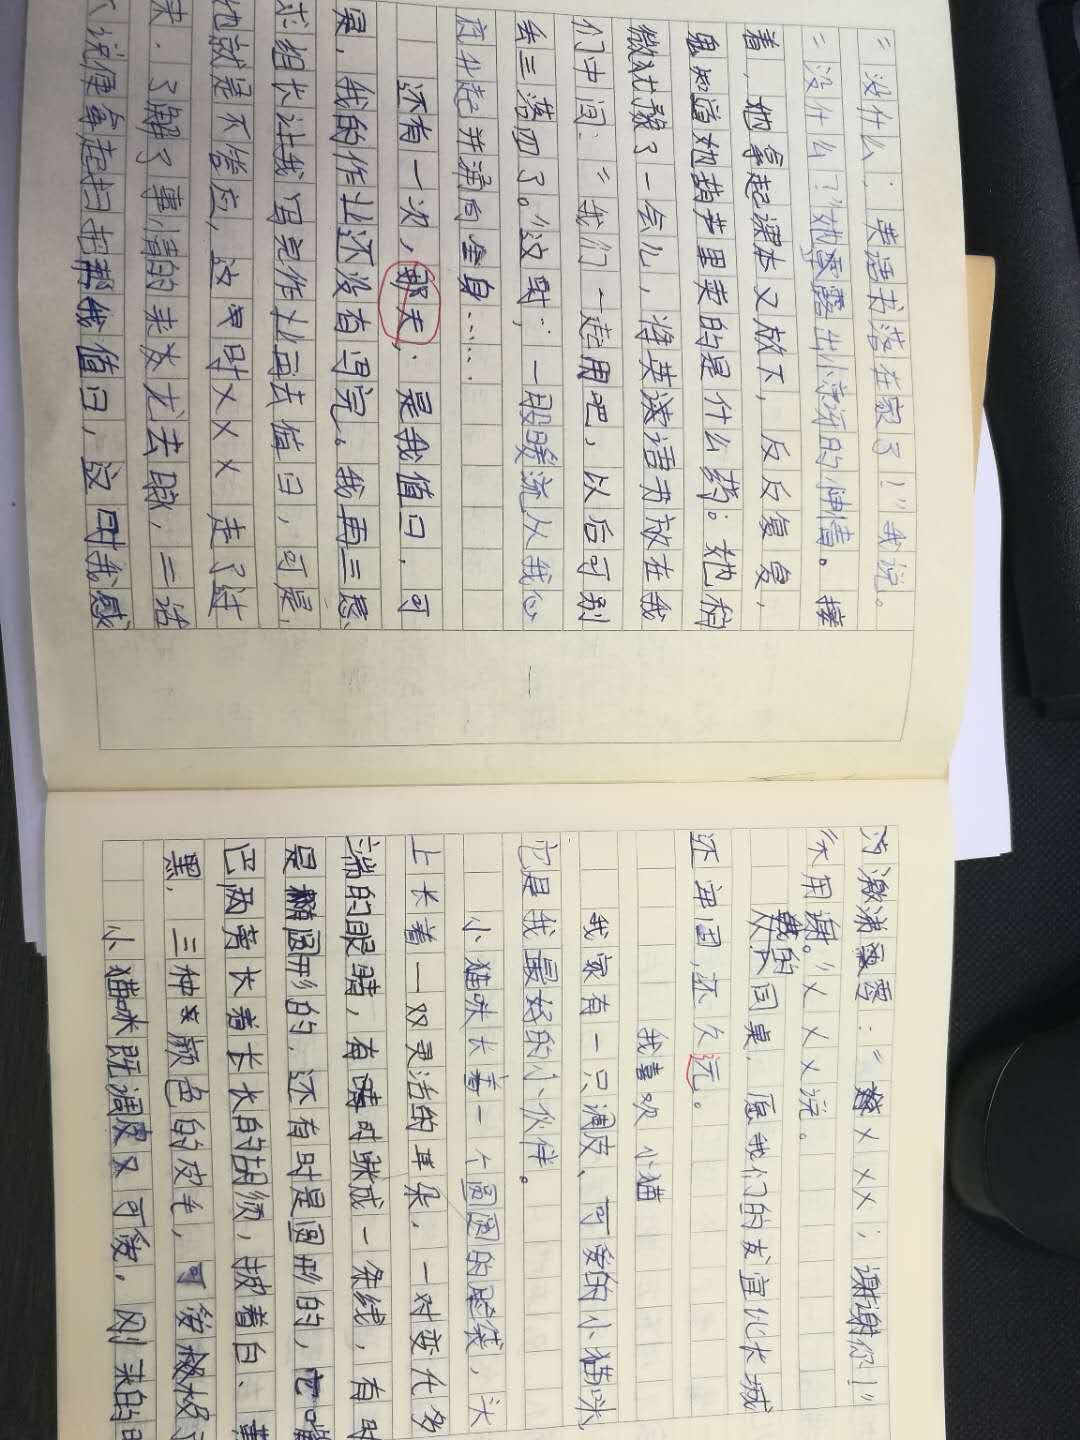 “没什么，英语书落在家了！”我说。
“没什么？”她露出小惊讶的神情。接
着，她拿起课本又放下，反反复复，
鬼知道她葫芦里卖的是什么药。她稍
微犹豫了一会儿，将英语书放在我
们中间：“我们一起用吧，以后可别
丢三落四了。”这时，一股暖流从我心
府升起并涌向全身……
还有一次，那天，是我值日，可
是，我的作业还没有写完。我再三恳
求组长让我写完作业再去值日，可是，
她就是不答应，这时×××走了过
来，了解了事情的来龙去脉，二话
不说便拿起扫把帮我值日，这时我感
为激涕零：“×××，谢谢你！”
“不用谢。”×××说。
我的同桌，愿我们的友宜比长城
还牢固，还久远。
我喜欢小猫
我家有一只调皮、可爱的小猫咪
它是我最好的小伙伴。
小猫咪长着一个圆圆的脸袋，头
上长着一双灵活的耳朵，一对变化多
端的眼睛，有时眯成一条线，有时
是椭圆形的，还有时是圆形的，它嘴
巴两旁长着长长的胡须，披着白、黄
黑，三种颜色的皮毛，可爱极了
小猫咪既调皮又可爱，刚来的时